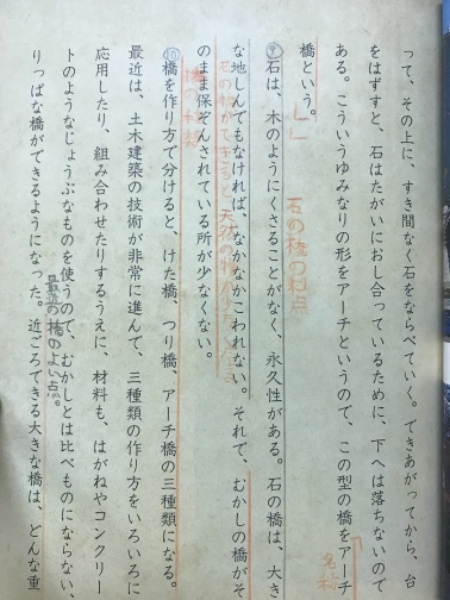 って、その上に、すき間なく石をならべていく。できあがってから、台
をはずすと、石はたがいにおし合っているために、下へは落ちないので
ある。こういうゆみなりの形をアーチというので、この型の橋をアーチ
名称
橋という。
石の橋の利点
⑨石は、木のようにくさることがなく、永久性がある。石の橋は、大き
な地しんでもなければ、なかなかこわれない。それで、むかしの橋がそ
のまま保ぞんされている所が少なくない。
橋の種類
⑩橋を作り方で分けると、けた橋、つり橋、アーチ橋の三種類になる。
最近は、土木建築の技術が非常に進んで、三種類の作り方をいろいろに
応用したり、組み合わせたりするうえに、材料も、はがねやコンクリー
トのようなじょうぶなものを使うので、むかしとは比べものにならない、
最近の橋のよい点。
りっぱな橋ができるようになった。近ごろできる大きな橋は、どんな重